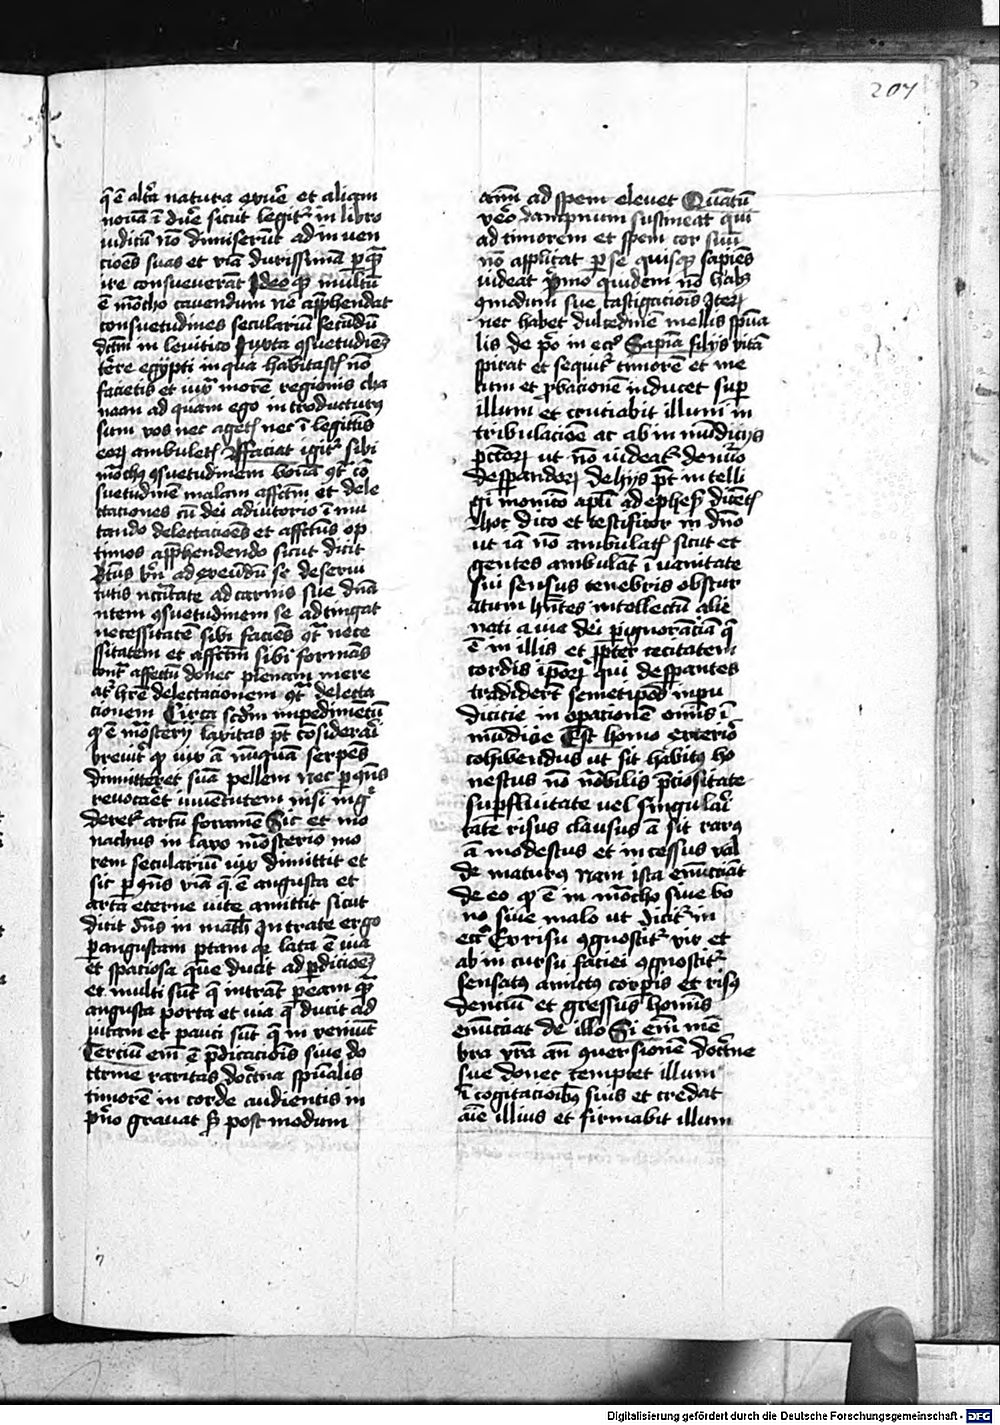 207
q̄ ē alt̄a natura exue᷑ et aliam
nouā ī due᷑ sicut legit᷑ in libro
iudicū nō dimiserūt ad in uen
cioēs suas et viā durissimā p̱ quā
ire consueuerāt Ideo qꝫ multū
ē mōcho cauendum ne app̄hendat
consuetudines seculariū secūdū
dc̄m in leuitico Iuxta ꝯsuetudiēꝫ
terre egypti in qua habitastꝭ nō
facietis et iux᷑ morē regionis cha
naan ad quam ego introducturꝯ
sum vos nec agetꝭ nec ī legittīs
eoꝝ ambuletꝭ Affaciat igit᷑ sibi
mōchꝯ ꝯsuetudinem bonā ꝯt᷑ cō
suetudinē malam affc̄m et dele
ctaciones cū dei adiutorio ī mu
tando delectacioēs et affectus op
timos app̄hendendo sicut dicit
ad exeūdū se de serui
tutis nc̄itate ad carnis sue dn̄a
ntem ꝯsuetudinem se adtingat
necessitatē sibi faciēs ꝯt᷑ nece
ssitatem et affc̄m sibi formās
cont᷑ affectū donec plenam mere
at᷑ hr̄e delectacionem ꝯt᷑ delecta
cionem Circa scd̄m impedimētū
qꝫ ē mōsterij laxitas pt̄ cōsiderai᷑
breuit᷑ qꝫ vix ā nūquā serpēs
dimitteret suā pellem nec p̱ ꝯn̄s
reuocaret iuuētutem nisi ing᷑
deret᷑ artū foramē Sic et mo
nachus in laxo mōsterio mo
rem seculariū vix dimittit et
sic p̱ ꝯn̄s viā q̄ ē angusta et
arta eterne vite amittit sicut
dicit dn̄s in math̄ Intrate ergo
p̱ angustam portam qꝛ lata ē via
et spaciosa que ducit ad p̱dicioēꝫ
et multi sūt q̄ intrāt p̱ eam quā
angusta porta et via q̄ ducit ad
vitam et pauci sūt q̄ in veniūt
Tercium em̄ ē p̄dicacioīs siue do
ctrine raritas doct᷑na spūalis
timorē in corde audientis in
pn̄o grauat sꝫ post modum
aīm ad spem eleuet Quātū
vero dampnum sustineat qui
ad timorem et spem cor suū
nō applicat p̱ se quisqꝫ sapiēs
uideat p̄mo quidem nō habꝫ
ꝯmodum sue castigaciois Iteꝝ
nec habet dulcedinē mellis spūa
lis de p̄o in ecc᷑ Sapīa filijs vitā
spirat et sequit᷑ timorē et me
tum et p̱bacionē inducet sup̱
illum et cruciabit illum in
tribulacioē ac ab in mūdicijs
pctōꝝ ut nō uideat᷑ denuo
desperandoꝝ de hijs pt̄ intelli
gi monicō apl̄i ad ephesꝭ dicētꝭ
Hoc dico et testificor in dn̄o
ut iā nō ambuletꝭ sicut et
gentes ambulāt ī uanitate
sui sensus tenebris obscur
atum hn̄tes intellectū alie
nati a via dei p̱ ignorāciā q̄
ē in illis et pp̄ter cecitatem
cordis ip̄oꝝ qui desp̱antes
tradidert᷑ semetip̄os inpu
dicicie in op̱ationē om̄is ī
mūdicie Est homo exterio᷑
cohibendus ut sit habitꝯ ho
nestus nō nobilis p̄ciositate
sup̱fluitate uel singulai᷑
tate risus clausus ā sit rarꝯ
ā modestus et in cessus val
de maturꝯ Nam ista enūcciāt
de eo qꝫ ē in mōcho siue bo
no siue malo ut dicit᷑ in
ecc᷑ Ex risu ꝯgnoscit᷑ vir et
ab in cursu faciei ꝯgnoscit᷑
sensatꝯ amictꝯ corpꝭis et risꝯ
denciū et gressus homīs
enūcciat de illo Si em̄ mē
bra vr̄a añ ꝯuersionē doct᷑ne
sue donec temptet illum
ī cogitacioībꝫ suis et credat
aīe illius et firmabit illum
Digitalisierung gefördert durch die Deutsche Forschungsgemeinschaft - DFG